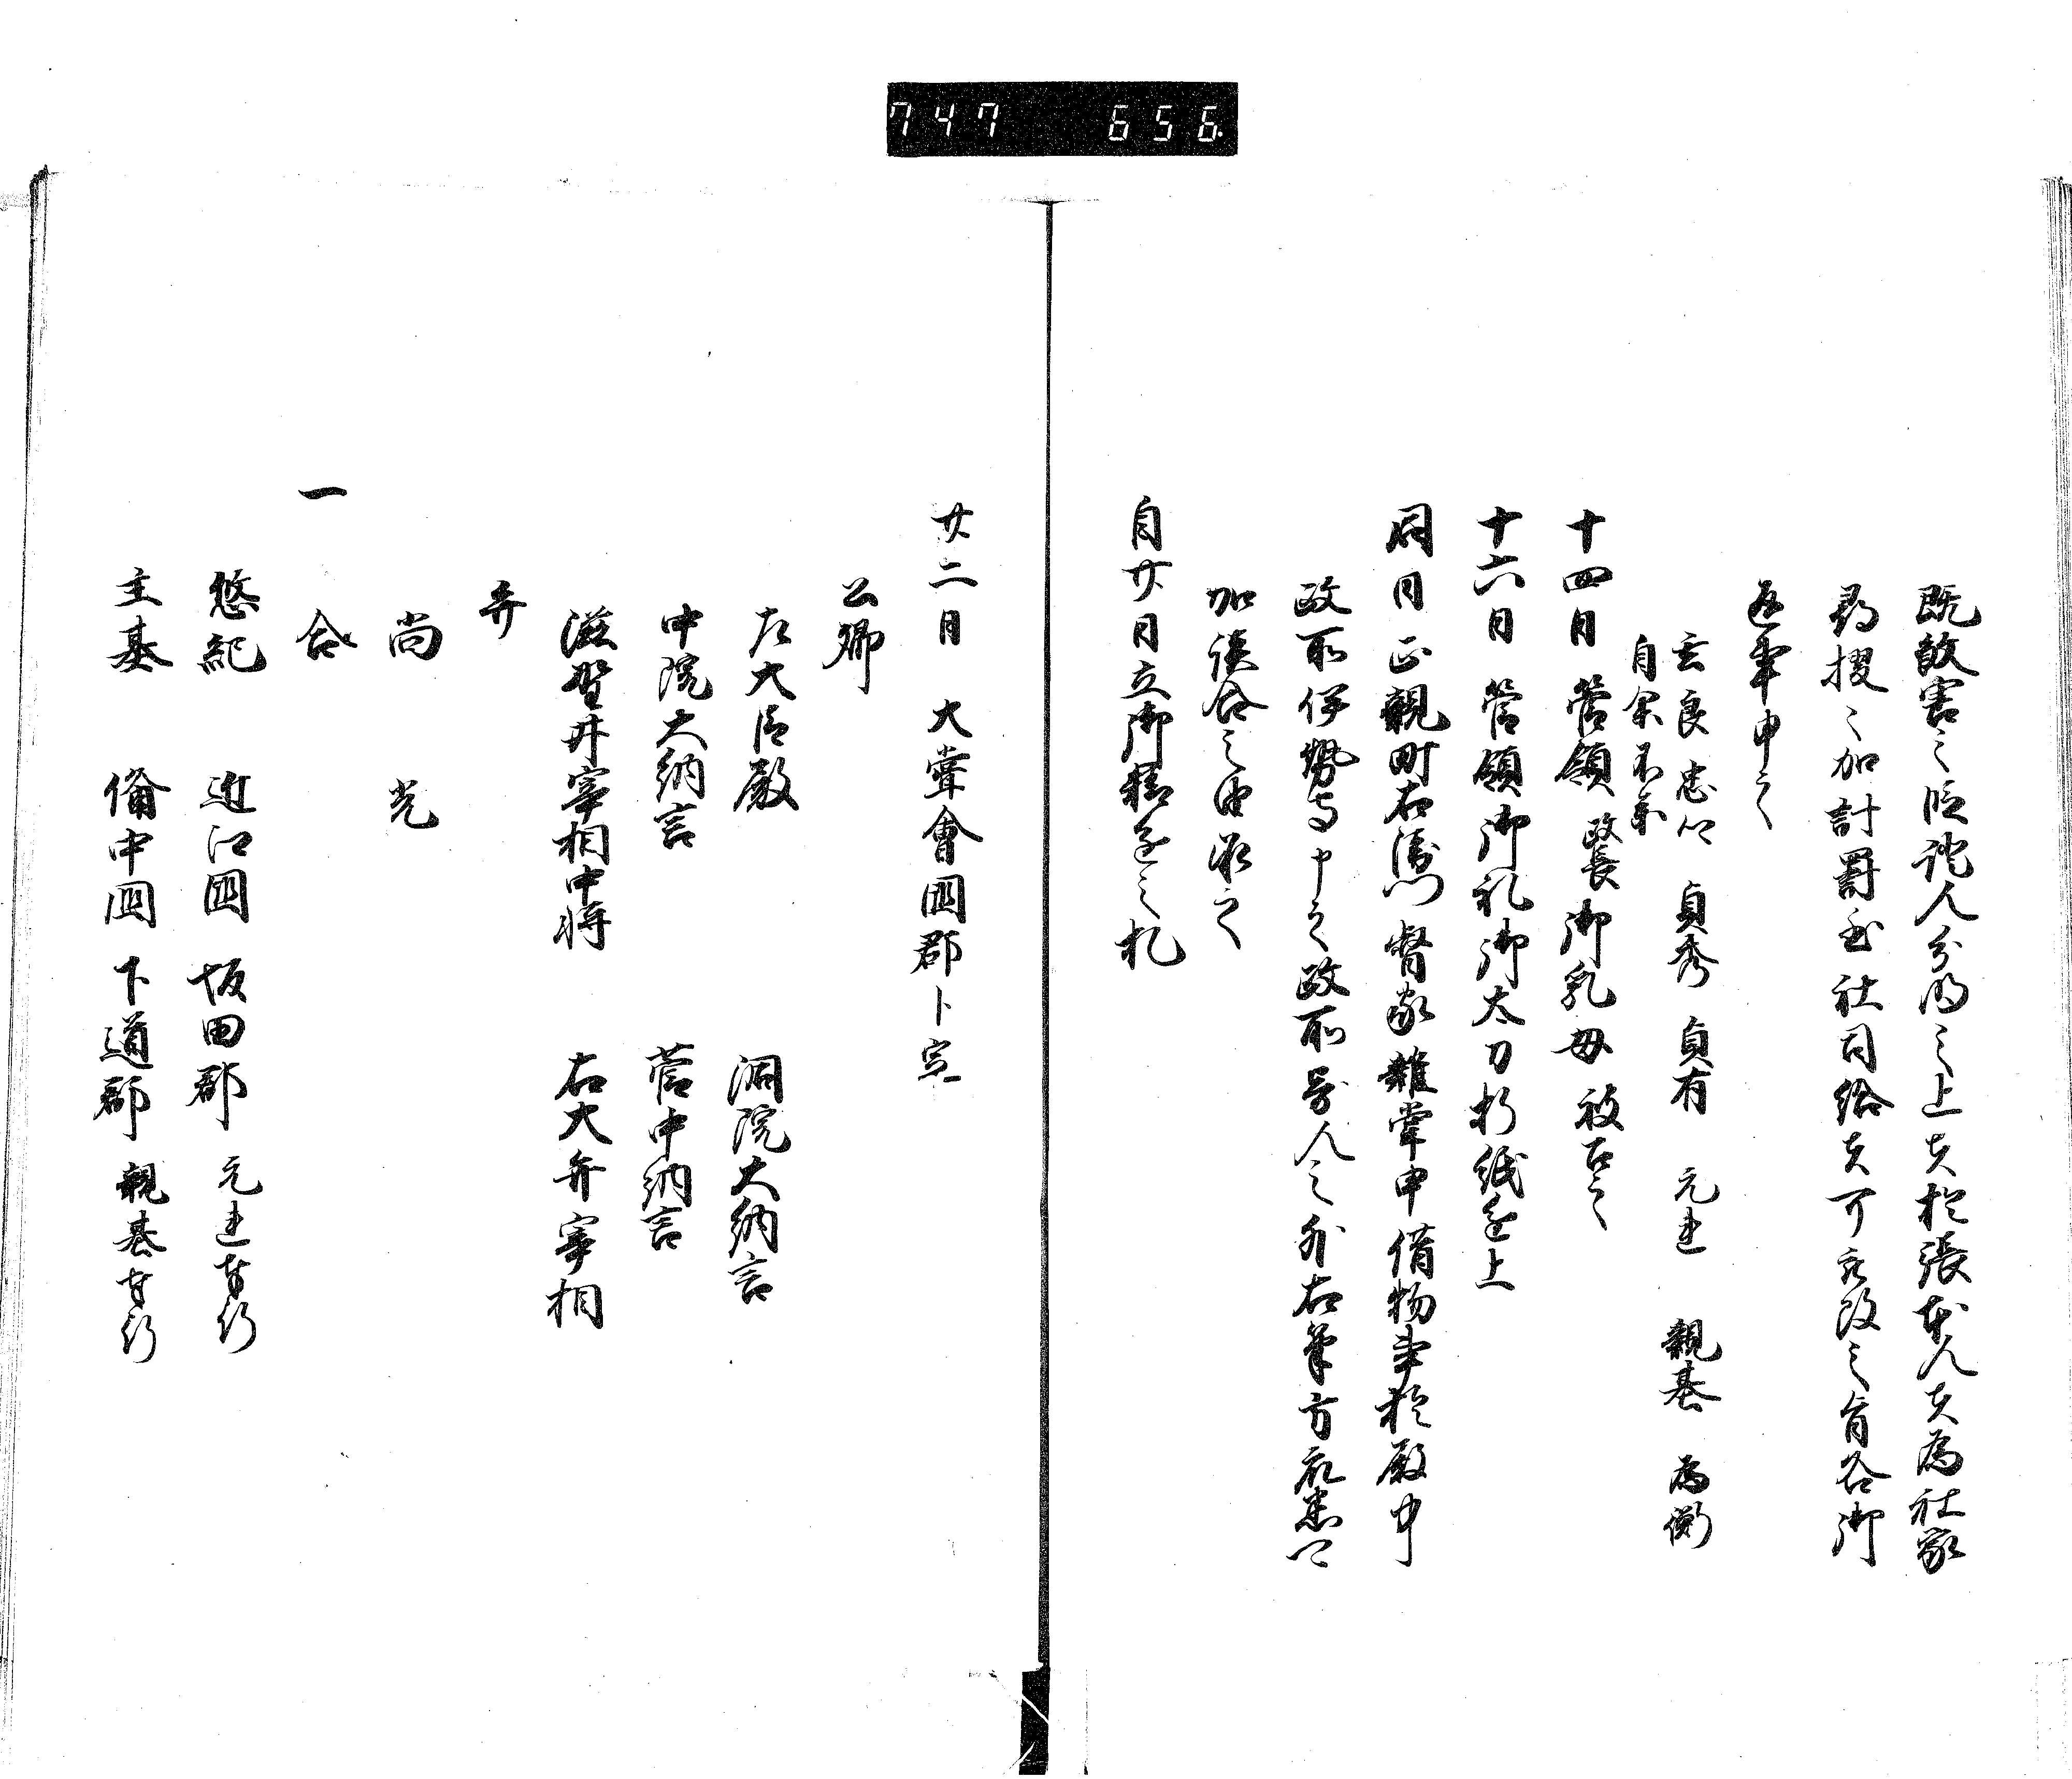 747 656
既敵害之段證人分明之上者於張本人者為社家
尋捜之加討罰至社司給者可被改之旨各御
返事申之
玄良 忠郷 貞秀 貞有 元連 親基 為衡
自余不参
十四日 管領 政長 御乳母被召之
十六日 管領御礼御太刀折紙進上
同日正親町右衛門督家雑掌申借物事於殿中
政所伊勢守申之政所寄人之外右筆方衆悉可
加談合之由被之
自廿日立御精進之札
廿二日 大嘗會國郡卜定
公卿
左大臣殿 洞院大納言
中院大納言 菅中納言
滋野井宰相中将 右大弁宰相
弁
尚光
一合
悠紀 近江國 坂田郡 元連奉行
主基 備中國 下道郡 親基奉行